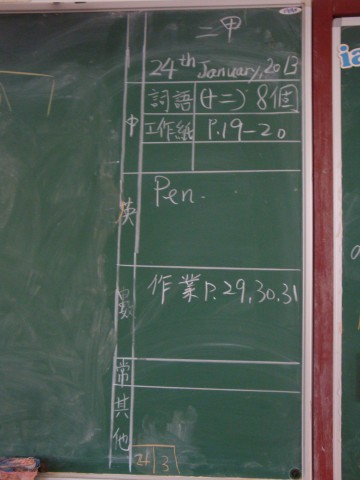 二甲
24th January, 2013
中 詞語 (十二) 8個
工作紙 P.19-20
英 Pen.
數 作業 P.29,30,31
常
其他
24 3